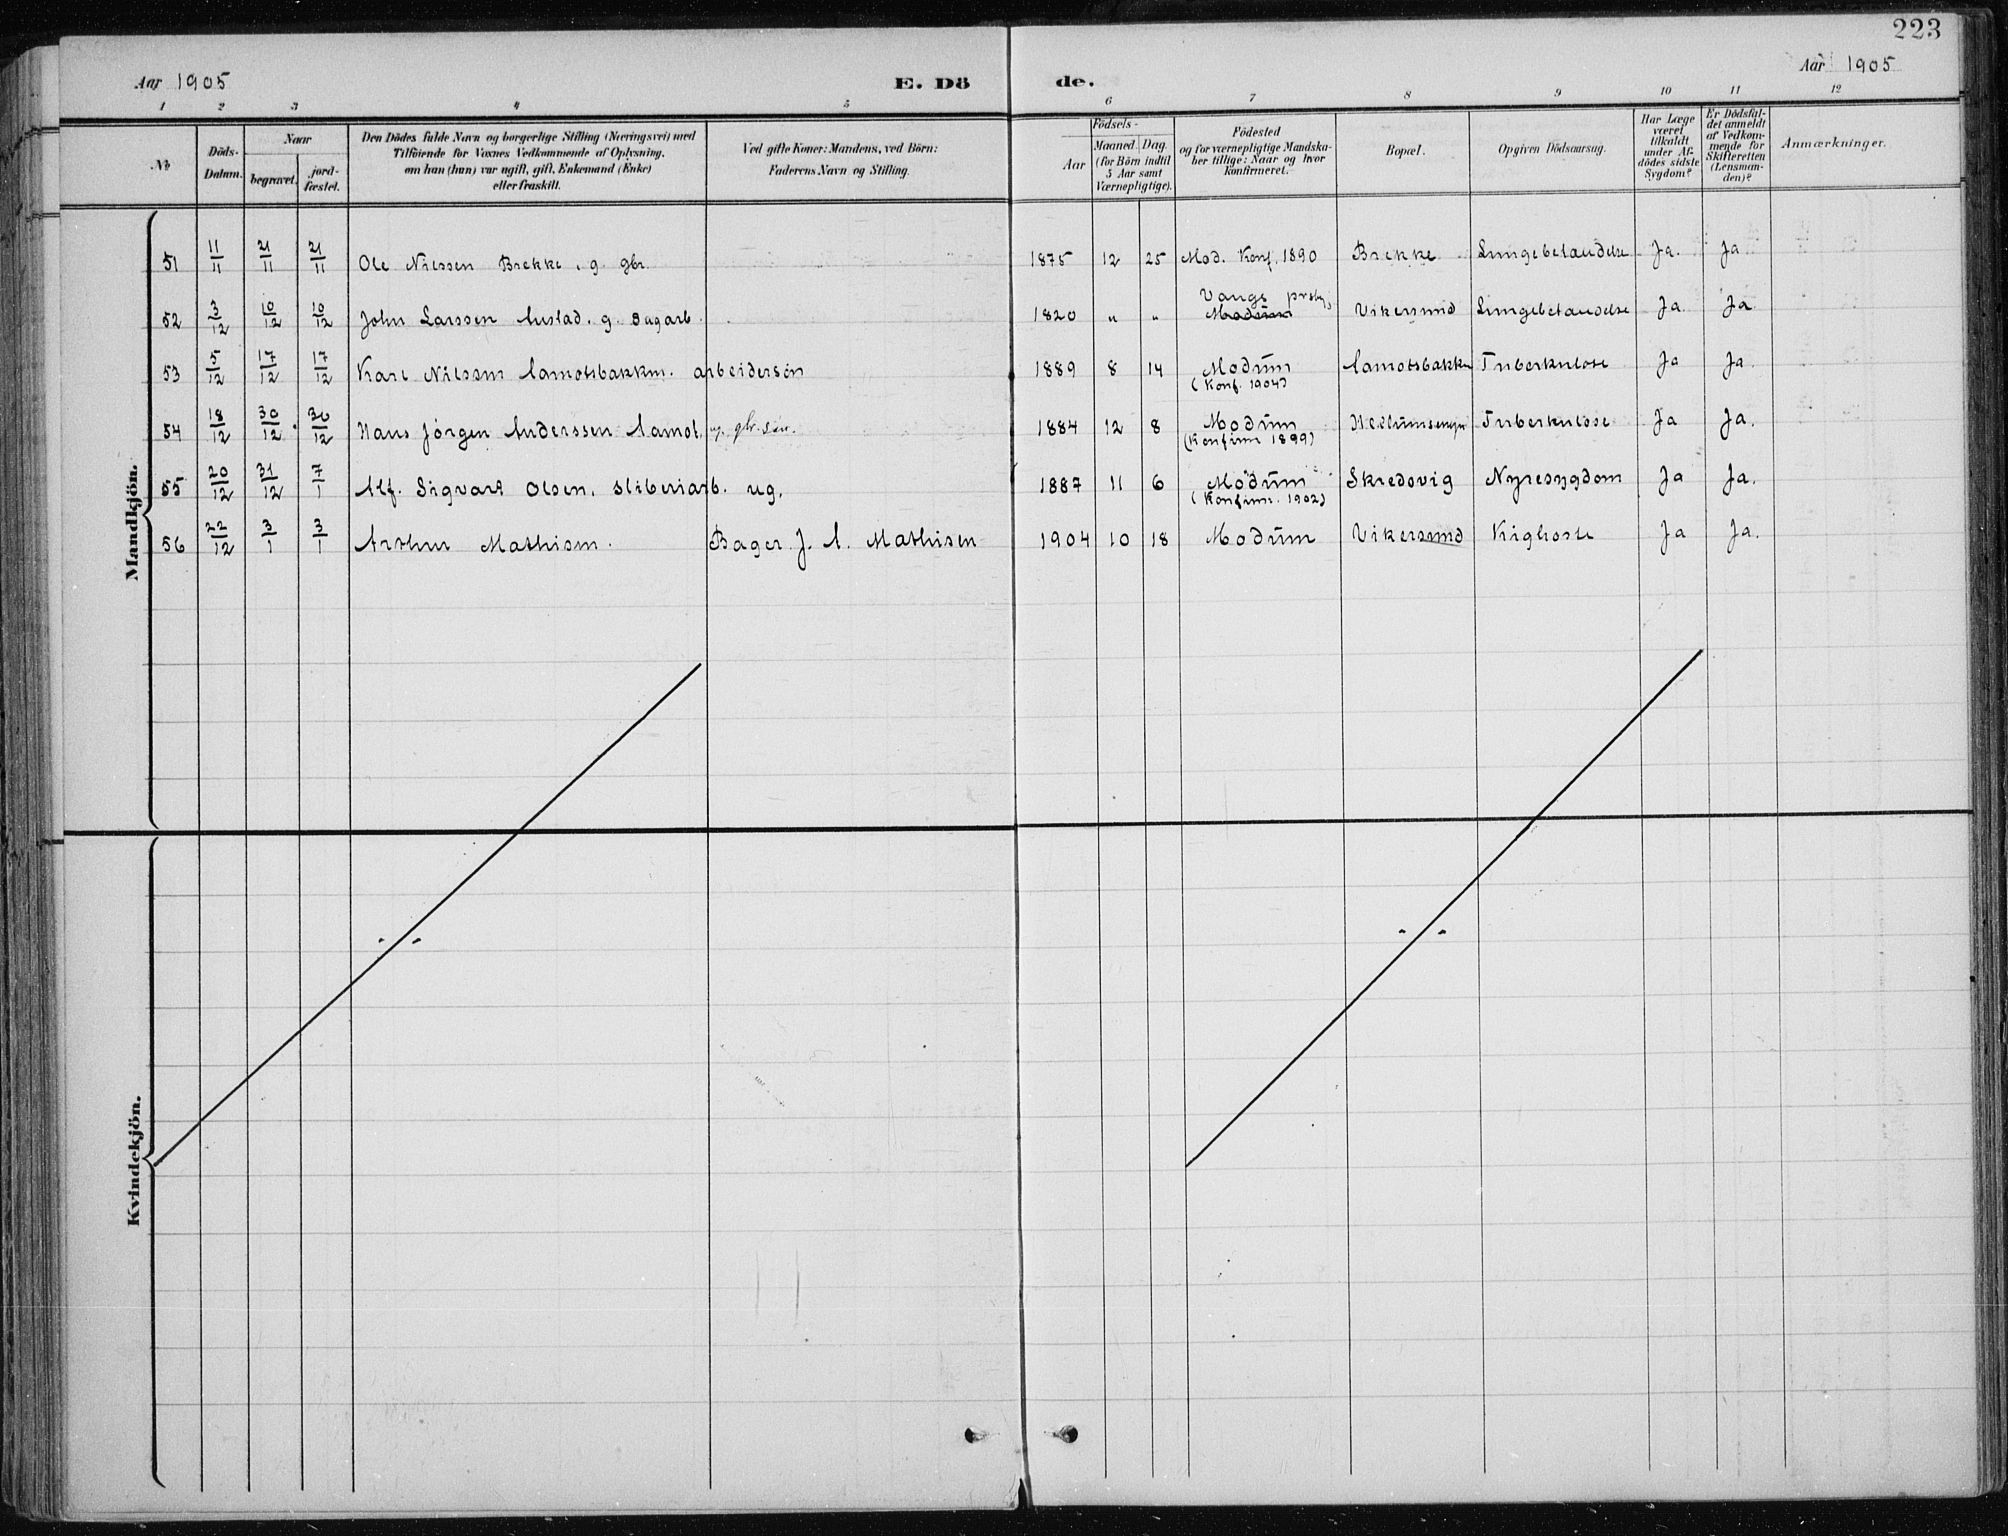 223
Aar 1905
E. Dö
de.
Aar 1905
1 2 3 4 5 6 7 8 9 10 11 12
№
Döds-
Datum.
Naar
begravet.
jord-
fæstet.
Den Dödes fulde Navn og borgerlige Stilling (Næringsvei) med
Tilföiende for Voxnes Vedkommende af Oplysning,
om han (hun) var ugift, gift, Enkemand (Enke)
eller fraskilt.
Ved gifte Koner: Mandens, ved Börn:
Faderens Navn og Stilling.
Födsels-
Aar
Maaned. Dag.
(for Börn indtil
5 Aar samt
Værnepligtige).
Födested
og for værnepligtige Mandska-
ber tillige: Naar og hvor
konfirmeret.
Bopæl.
Opgiven Dödsaarsag.
Har Læge
været
tilkaldt
under Af-
dödes sidste
Sygdom?
Er Dödsfal-
det anmeldt
af Vedkom-
mende for
Skifteretten
(Lensman-
den)?
Anmærkninger.
Mandkjön.
51 11/11 21/11 21/11 Ole Nilssen Brekke, g. gbr. 1875 12 25 Mod. Konf. 1890 Brekke Lungebetændelse Ja. Ja
Vangs
52 3/12 10/12 10/12 John Larssen Austad. g. sagarb. 1820 " " Modum Vikersund Lungebetændelse Ja Ja
53 5/12 17/12 17/12 Karl Nilssen Aamotsbakken. arbeidersøn 1889 8 14 Modum Aamotsbakken Tuberkulose Ja Ja.
(Konf. 1904)
54 18/12 30/12 30/12 Hans Jørgen Anderssen Aamot, ug. gbr. søn. 1884 12 8 Modum Tuberkulose Ja Ja.
(Konfirm 1899)
55 20/12 31/12 7/1 Alf. Sigvart Olsen. sliberiarb. ug. 1887 11 6 Modum Skredsvig Nyresygdom Ja Ja.
(Konfirm. 1902)
56 22/12 3/1 3/1 Arthur Mathisen. Bager J. A. Mathisen 1904 10 18 Modum Vikersund Kighoste Ja Ja.
Kvindekjön.